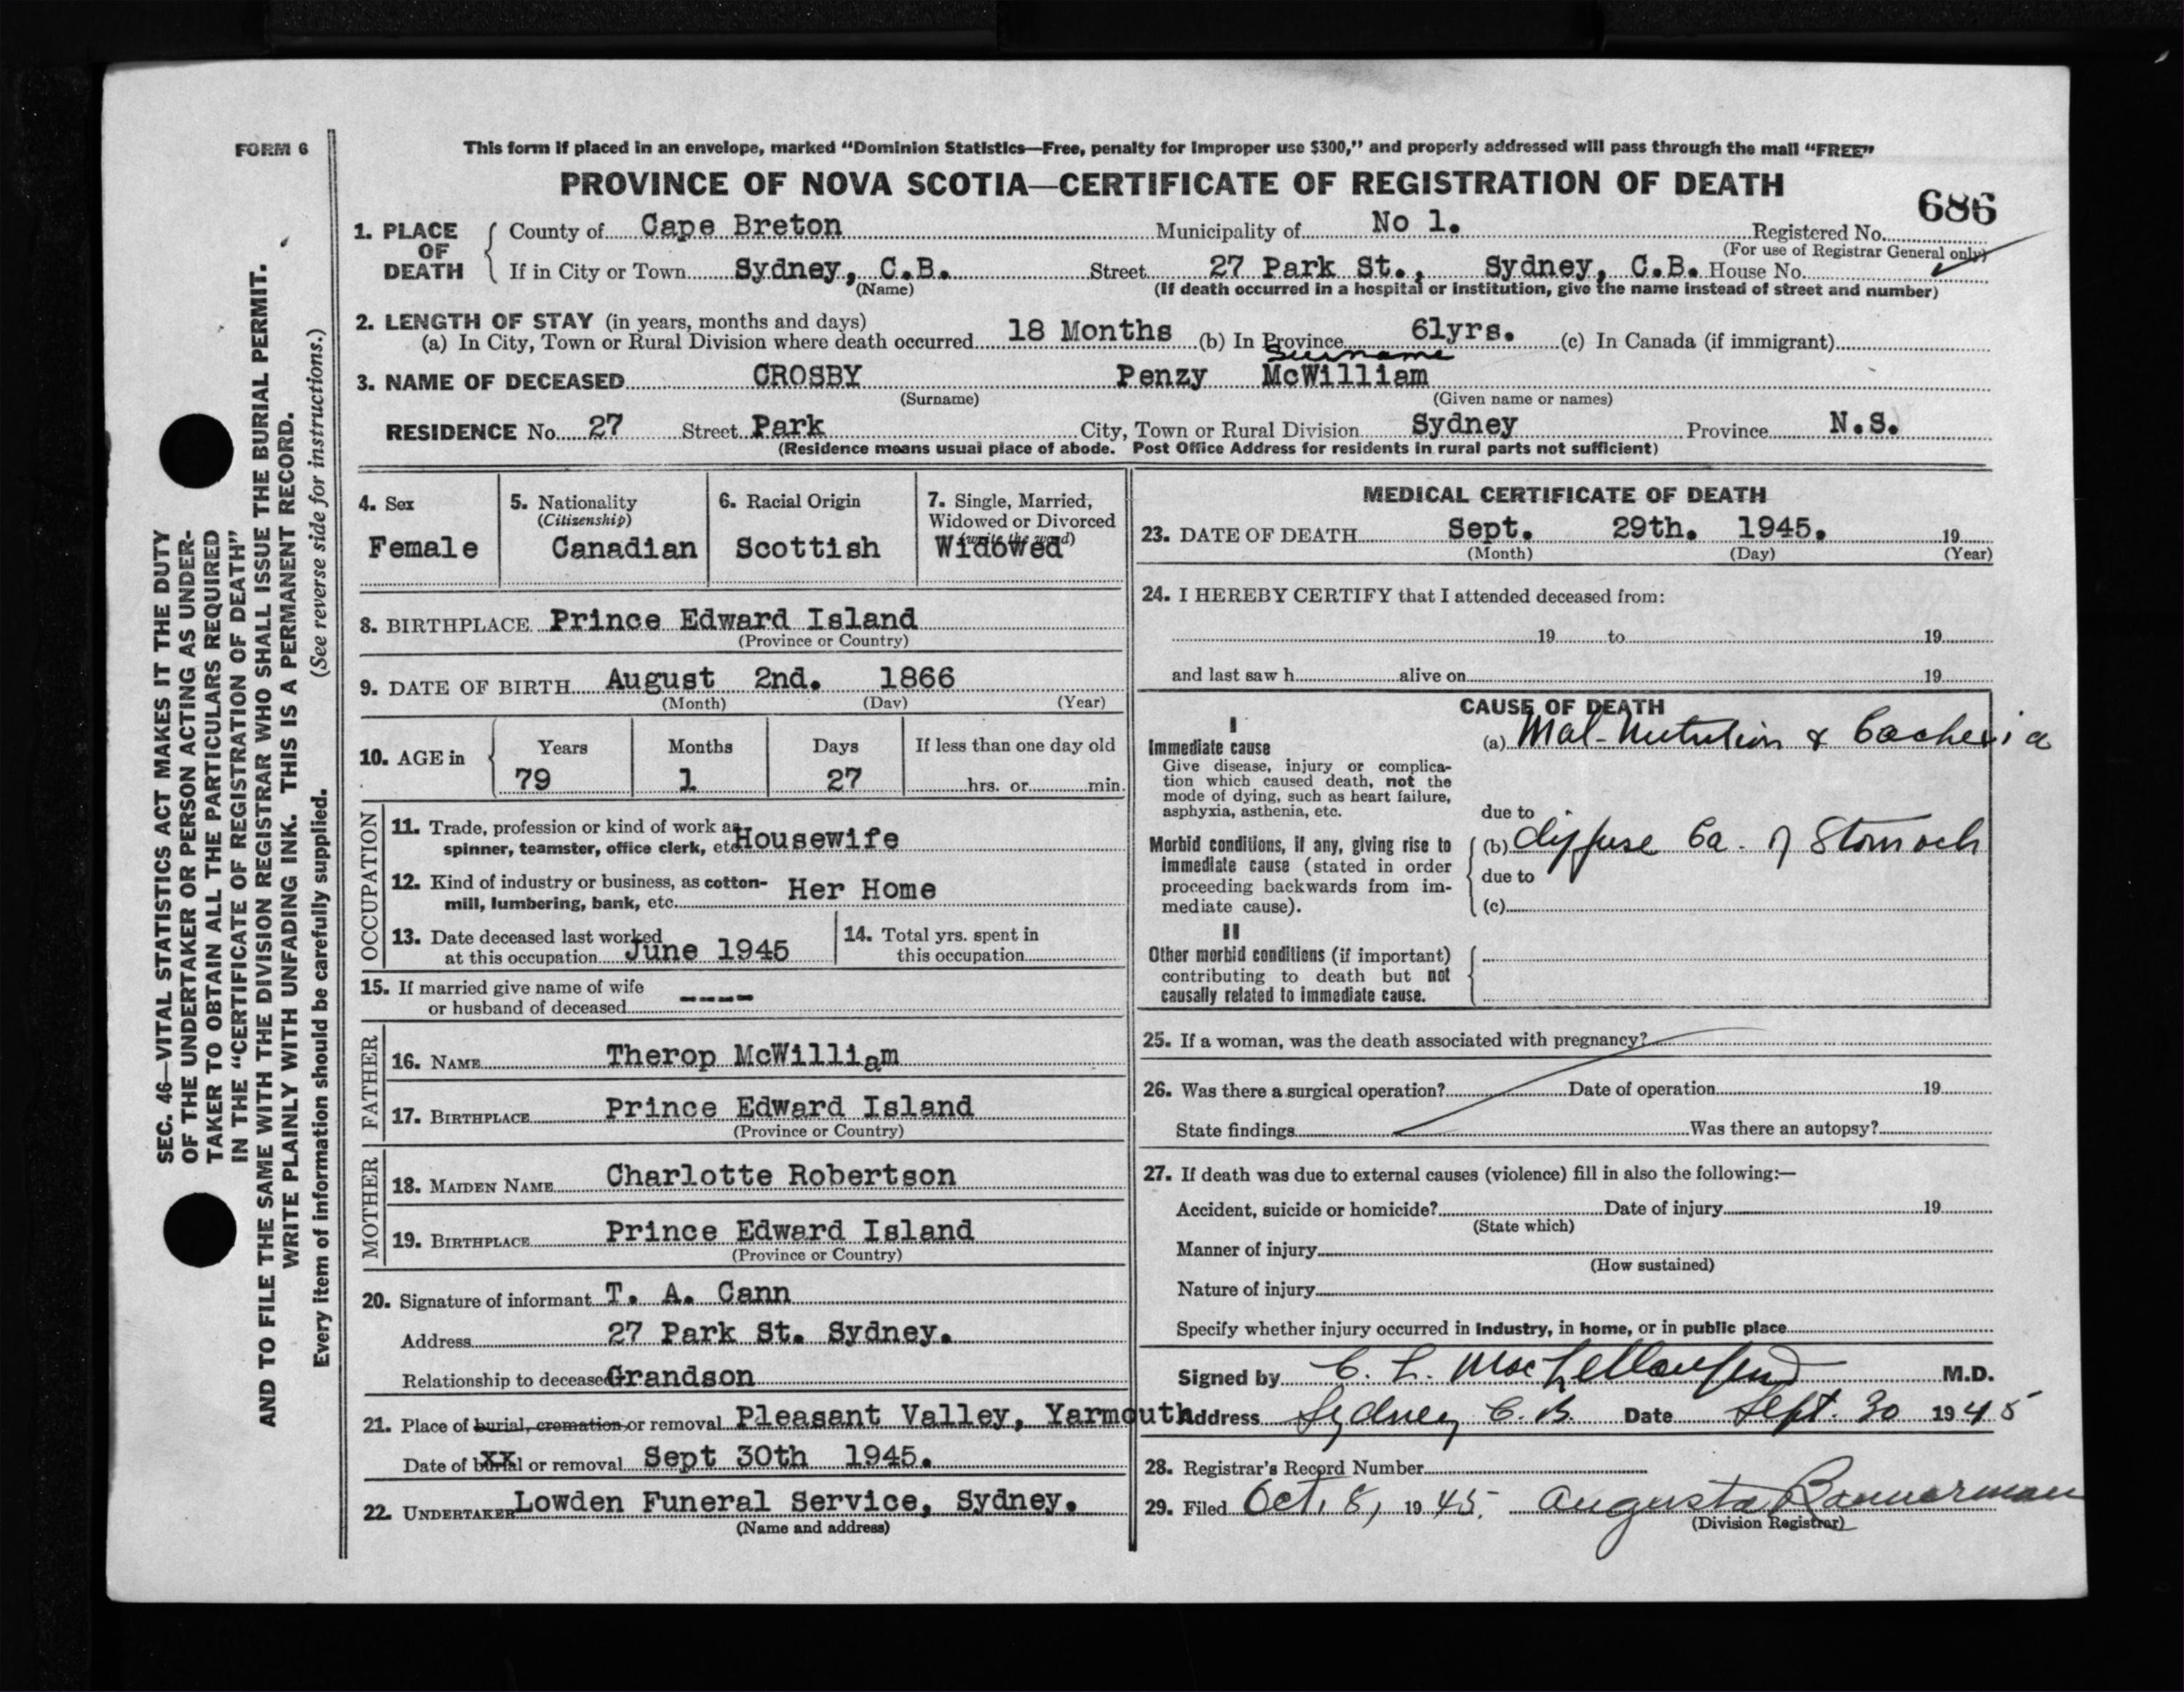 FORM 6
This form if placed in an envelope, marked “Dominion Statistics—Free, penalty for improper use $300,” and properly addressed will pass through the mail “FREE”
PROVINCE OF NOVA SCOTIA—CERTIFICATE OF REGISTRATION OF DEATH
686
1. PLACE OF DEATH
County of Cape Breton Municipality of No 1. Registered No.
(For use of Registrar General only)
If in City or Town Sydney, C.B. Street 27 Park St., Sydney, C.B. House No.
(Name) (If death occurred in a hospital or institution, give the name instead of street and number)
2. LENGTH OF STAY (in years, months and days)
(a) In City, Town or Rural Division where death occurred 18 Months (b) In Province 61yrs. (c) In Canada (if immigrant)
Surname
3. NAME OF DECEASED CROSBY Penzy McWilliam
(Surname) (Given name or names)
RESIDENCE No. 27 Street Park City, Town or Rural Division Sydney Province N.S.
(Residence means usual place of abode. Post Office Address for residents in rural parts not sufficient)
4. Sex
Female
5. Nationality
(Citizenship)
Canadian
6. Racial Origin
Scottish
7. Single, Married,
Widowed or Divorced
(write the word)
Widowed
8. BIRTHPLACE Prince Edward Island
(Province or Country)
9. DATE OF BIRTH August 2nd. 1866
(Month) (Day) (Year)
10. AGE in
Years Months Days If less than one day old
79 1 27 hrs. or min.
OCCUPATION
11. Trade, profession or kind of work as
spinner, teamster, office clerk, etc. Housewife
12. Kind of industry or business, as cotton-
mill, lumbering, bank, etc. Her Home
13. Date deceased last worked
at this occupation June 1945
14. Total yrs. spent in
this occupation
15. If married give name of wife
or husband of deceased ----
FATHER
16. NAME Therop McWilliam
17. BIRTHPLACE Prince Edward Island
(Province or Country)
MOTHER
18. MAIDEN NAME Charlotte Robertson
19. BIRTHPLACE Prince Edward Island
(Province or Country)
20. Signature of informant T. A. Cann
Address 27 Park St. Sydney.
Relationship to deceased Grandson
21. Place of burial, cremation or removal Pleasant Valley, Yarmouth
Date of burial or removal Sept 30th 1945.
22. UNDERTAKER Lowden Funeral Service, Sydney.
(Name and address)
MEDICAL CERTIFICATE OF DEATH
23. DATE OF DEATH Sept. 29th. 1945. 19
(Month) (Day) (Year)
24. I HEREBY CERTIFY that I attended deceased from:
19 to 19
and last saw h alive on 19
CAUSE OF DEATH
I
Immediate cause
Give disease, injury or complica-
tion which caused death, not the
mode of dying, such as heart failure,
asphyxia, asthenia, etc.
(a) Mal-Nutrition & Cachexia
due to
Morbid conditions, if any, giving rise to
immediate cause (stated in order
proceeding backwards from im-
mediate cause).
(b) diffuse Ca. of Stomach
due to
(c)
II
Other morbid conditions (if important)
contributing to death but not
causally related to immediate cause.
25. If a woman, was the death associated with pregnancy?
26. Was there a surgical operation? Date of operation 19
State findings Was there an autopsy?
27. If death was due to external causes (violence) fill in also the following:—
Accident, suicide or homicide? Date of injury 19
(State which)
Manner of injury
(How sustained)
Nature of injury
Specify whether injury occurred in industry, in home, or in public place
Signed by C. L. MacLellan M.D.
Address Sydney C. B. Date Sept. 30 1945
28. Registrar's Record Number
29. Filed Oct. 8, 1945. Augusta Bannerman
(Division Registrar)
SEC. 46—VITAL STATISTICS ACT MAKES IT THE DUTY
OF THE UNDERTAKER OR PERSON ACTING AS UNDER-
TAKER TO OBTAIN ALL THE PARTICULARS REQUIRED
IN THE “CERTIFICATE OF REGISTRATION OF DEATH”
AND TO FILE THE SAME WITH THE DIVISION REGISTRAR WHO SHALL ISSUE THE BURIAL PERMIT.
WRITE PLAINLY WITH UNFADING INK. THIS IS A PERMANENT RECORD.
Every item of information should be carefully supplied. (See reverse side for instructions.)